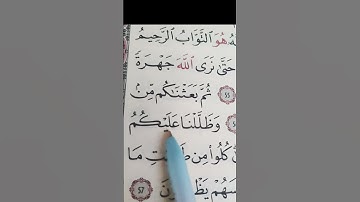 هُوَ ٱلتَّوَّابُ ٱلرَّحِيمُ
حَتَّىٰ نَرَى ٱللَّهَ جَهْرَةً
٥٥ ثُمَّ بَعَثْنَٰكُم مِّنۢ
وَظَلَّلْنَا عَلَيْكُمُ
كُلُوا۟ مِن مَا
٥٧